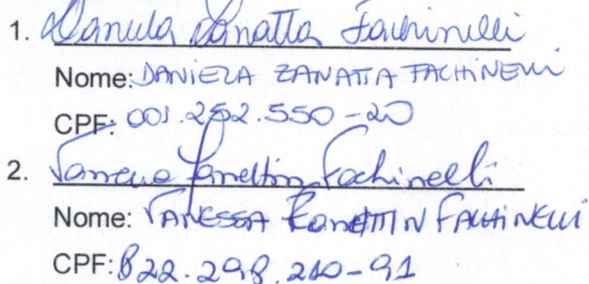 1. Daniela Zanatta Fachinelli
Nome: DANIELA ZANATTA FACHINELLI
CPF: 001.252.550-20
2. Vanessa Zanettin Fachinelli
Nome: VANESSA ZANETTIN FACHINELLI
CPF: 822.298.210-91